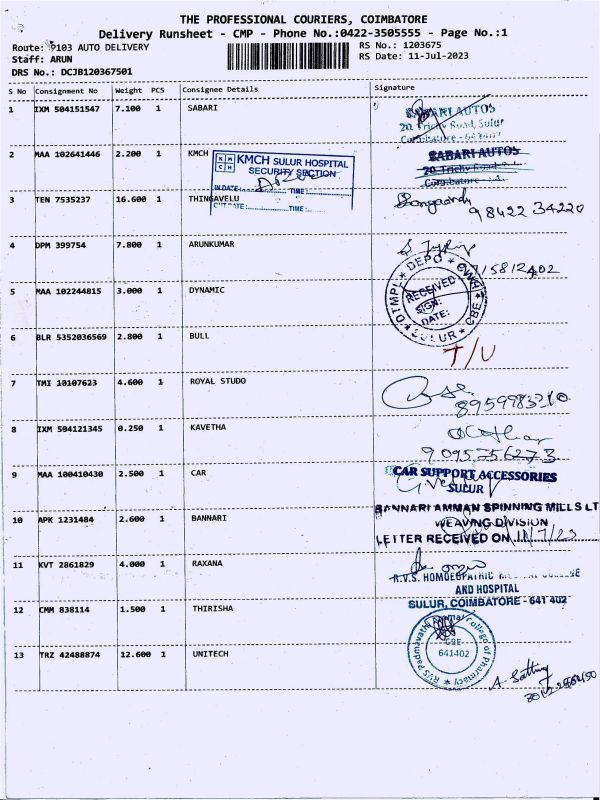 THE PROFESSIONAL COURIERS, COIMBATORE
Delivery Runsheet - CMP - Phone No.:0422-3505555 - Page No.:1
Route: 9103 AUTO DELIVERY RS No.: 1203675
Staff: ARUN RS Date: 11-Jul-2023
DRS No.: DCJB120367501
S No Consignment No Weight PCS Consignee Details Signature
1 IXM 504151547 7.100 1 SABARI
SABARI AUTOS
20, Trichy Road, Sulur
Coimbatore - 641402
2 MAA 102641446 2.200 1 KMCH
KMCH SULUR HOSPITAL
SECURITY SECTION
IN DATE: TIME:
OUT DATE: TIME:
SABARI AUTOS
20, Trichy Road,
Coimbatore
3 TEN 7535237 16.600 1 THINGAVELU
98422 34220
4 DPM 399754 7.800 1 ARUNKUMAR
15812402
5 MAA 102244815 3.000 1 DYNAMIC
OTMPL DEPO CWH
RECEIVED
SIGN:
DATE:
SULUR CBE
6 BLR 5352036569 2.800 1 BULL
T/U
7 TMI 13107623 4.600 1 ROYAL STUDO
8959983310
8 IXM 504121345 0.250 1 KAVETHA
9095756273
9 MAA 100410430 2.500 1 CAR
CAR SUPPORT ACCESSORIES
SULUR
10 APK 1231484 2.600 1 BANNARI
BANNARI AMMAN SPINNING MILLS LT
WEAVING DIVISION
LETTER RECEIVED ON 11/7/23
11 KVT 2861829 4.000 1 RAXANA
R.V.S. HOMOEOPATHIC MEDICAL COLLEGE
AND HOSPITAL
SULUR, COIMBATORE - 641 402
12 CMM 838114 1.500 1 THIRISHA
RVS Padmavathi Ammal College of Pharmacy
CBE
641402
13 TRZ 42488874 12.600 1 UNITECH